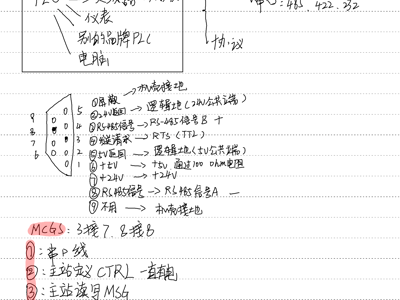 串口: 485, 422, 232
仪表
别的品牌PLC
电脑
协议
①屏蔽 → 机壳接地
②24V返回 → 逻辑地 (24V公共端)
③RS-485信号 → RS-485信号B +
④发送请求 → RTS (TTL)
⑤5V返回 → 逻辑地 (5V公共端)
⑥+5V → +5V 通过100 ohm电阻
⑦+24V → +24V
⑧RS485信号 → RS485信号A —
⑨不用 → 机壳接地
9
8
7
6
5
4
3
2
1
MCGS: 3接7, 8接B
①: 串P线
②: 主站定义CTRL 一直轮
③: 主站读写MSG